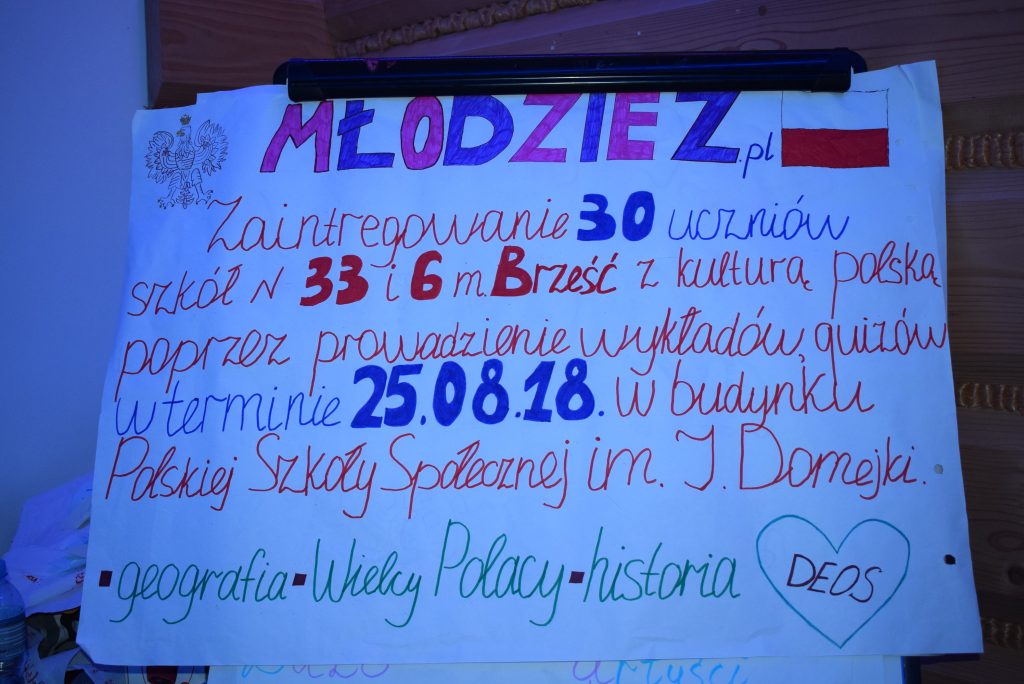 MŁODZIEŻ.pl
Zaintregowanie 30 uczniów
szkół N 33 i 6 m. Brześć z kulturą polską
poprzez prowadzienie wykładów, quizów
w terminie 25.08.18. w budynku
Polskiej Szkoły Społecznej im. I. Domejki.
▪geografia▪Wielcy Polacy▪historia
DEOS